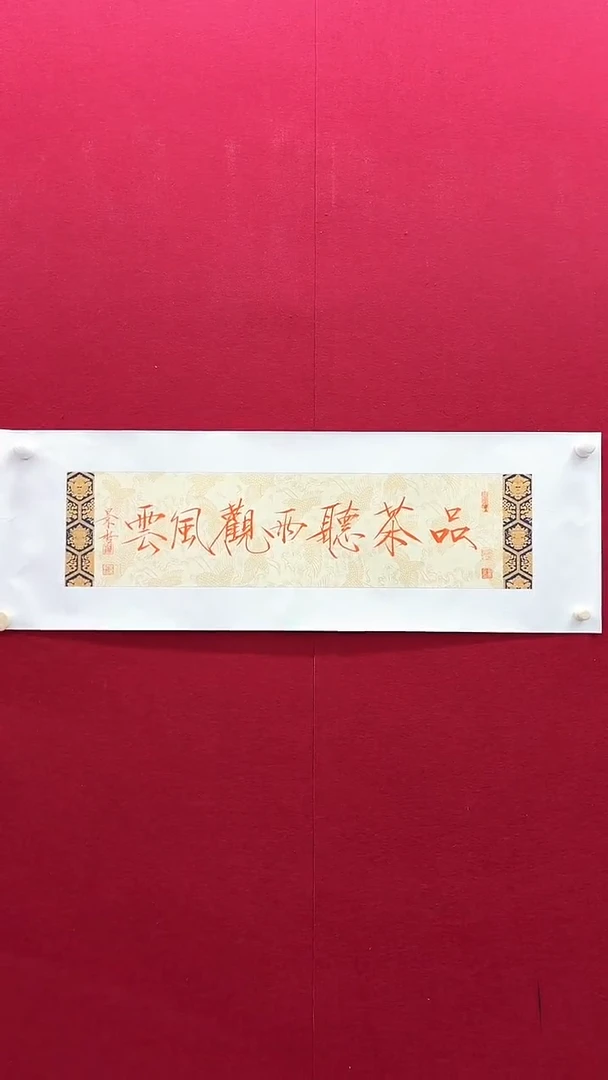 品茶聽雨觀風雲